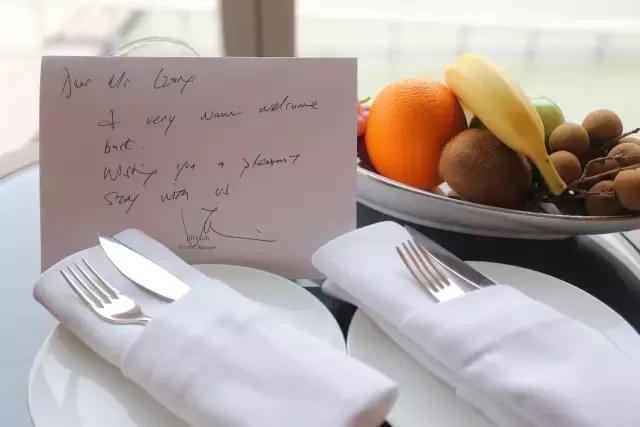 Dear Mr
A very warm welcome
back.
Wishing you a pleasant
stay with us.